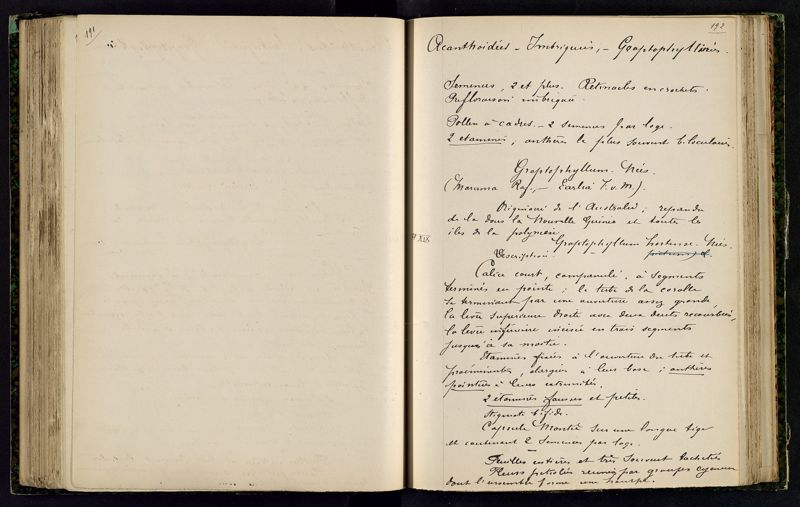 191
192
Acanthoidées - Imbriquées, - Graptophyllées.
Semences, 2 et plus. Rétinacles en crochets.
Préfloraison imbriquée
Pollen à cadres. - 2 semences par loge.
2 étamines, anthères le plus souvent biloculaires.
Graptophyllum. Nées.
(Marama Raf. - Earlia F. v. M.).
Originaire de l'Australie, répandu
de là dans la Nouvelle Guinée et toute les
îles de la polynésie
Graptophyllum hortense. Nées.
Description.
Calice court, campanulé, à segments
terminés en pointe; le tube de la corolle
se terminant par une ouverture assez grande,
la lèvre supérieure droite avec deux dents recourbées,
la lèvre inférieure incisée en trois segments
jusqu'à sa moitié.
Etamines fixées à l'ouverture du tube et
proéminentes, élargies à leur base; anthères
pointues à leurs extrémités.
2 étamines fausses et petites.
Stigmate bifide.
Capsule montée sur une longue tige
et contenant 2 semences par loge.
Feuilles entières et très souvent tachetées
Fleurs pétiolés réunies par groupes
dont l'ensemble forme une